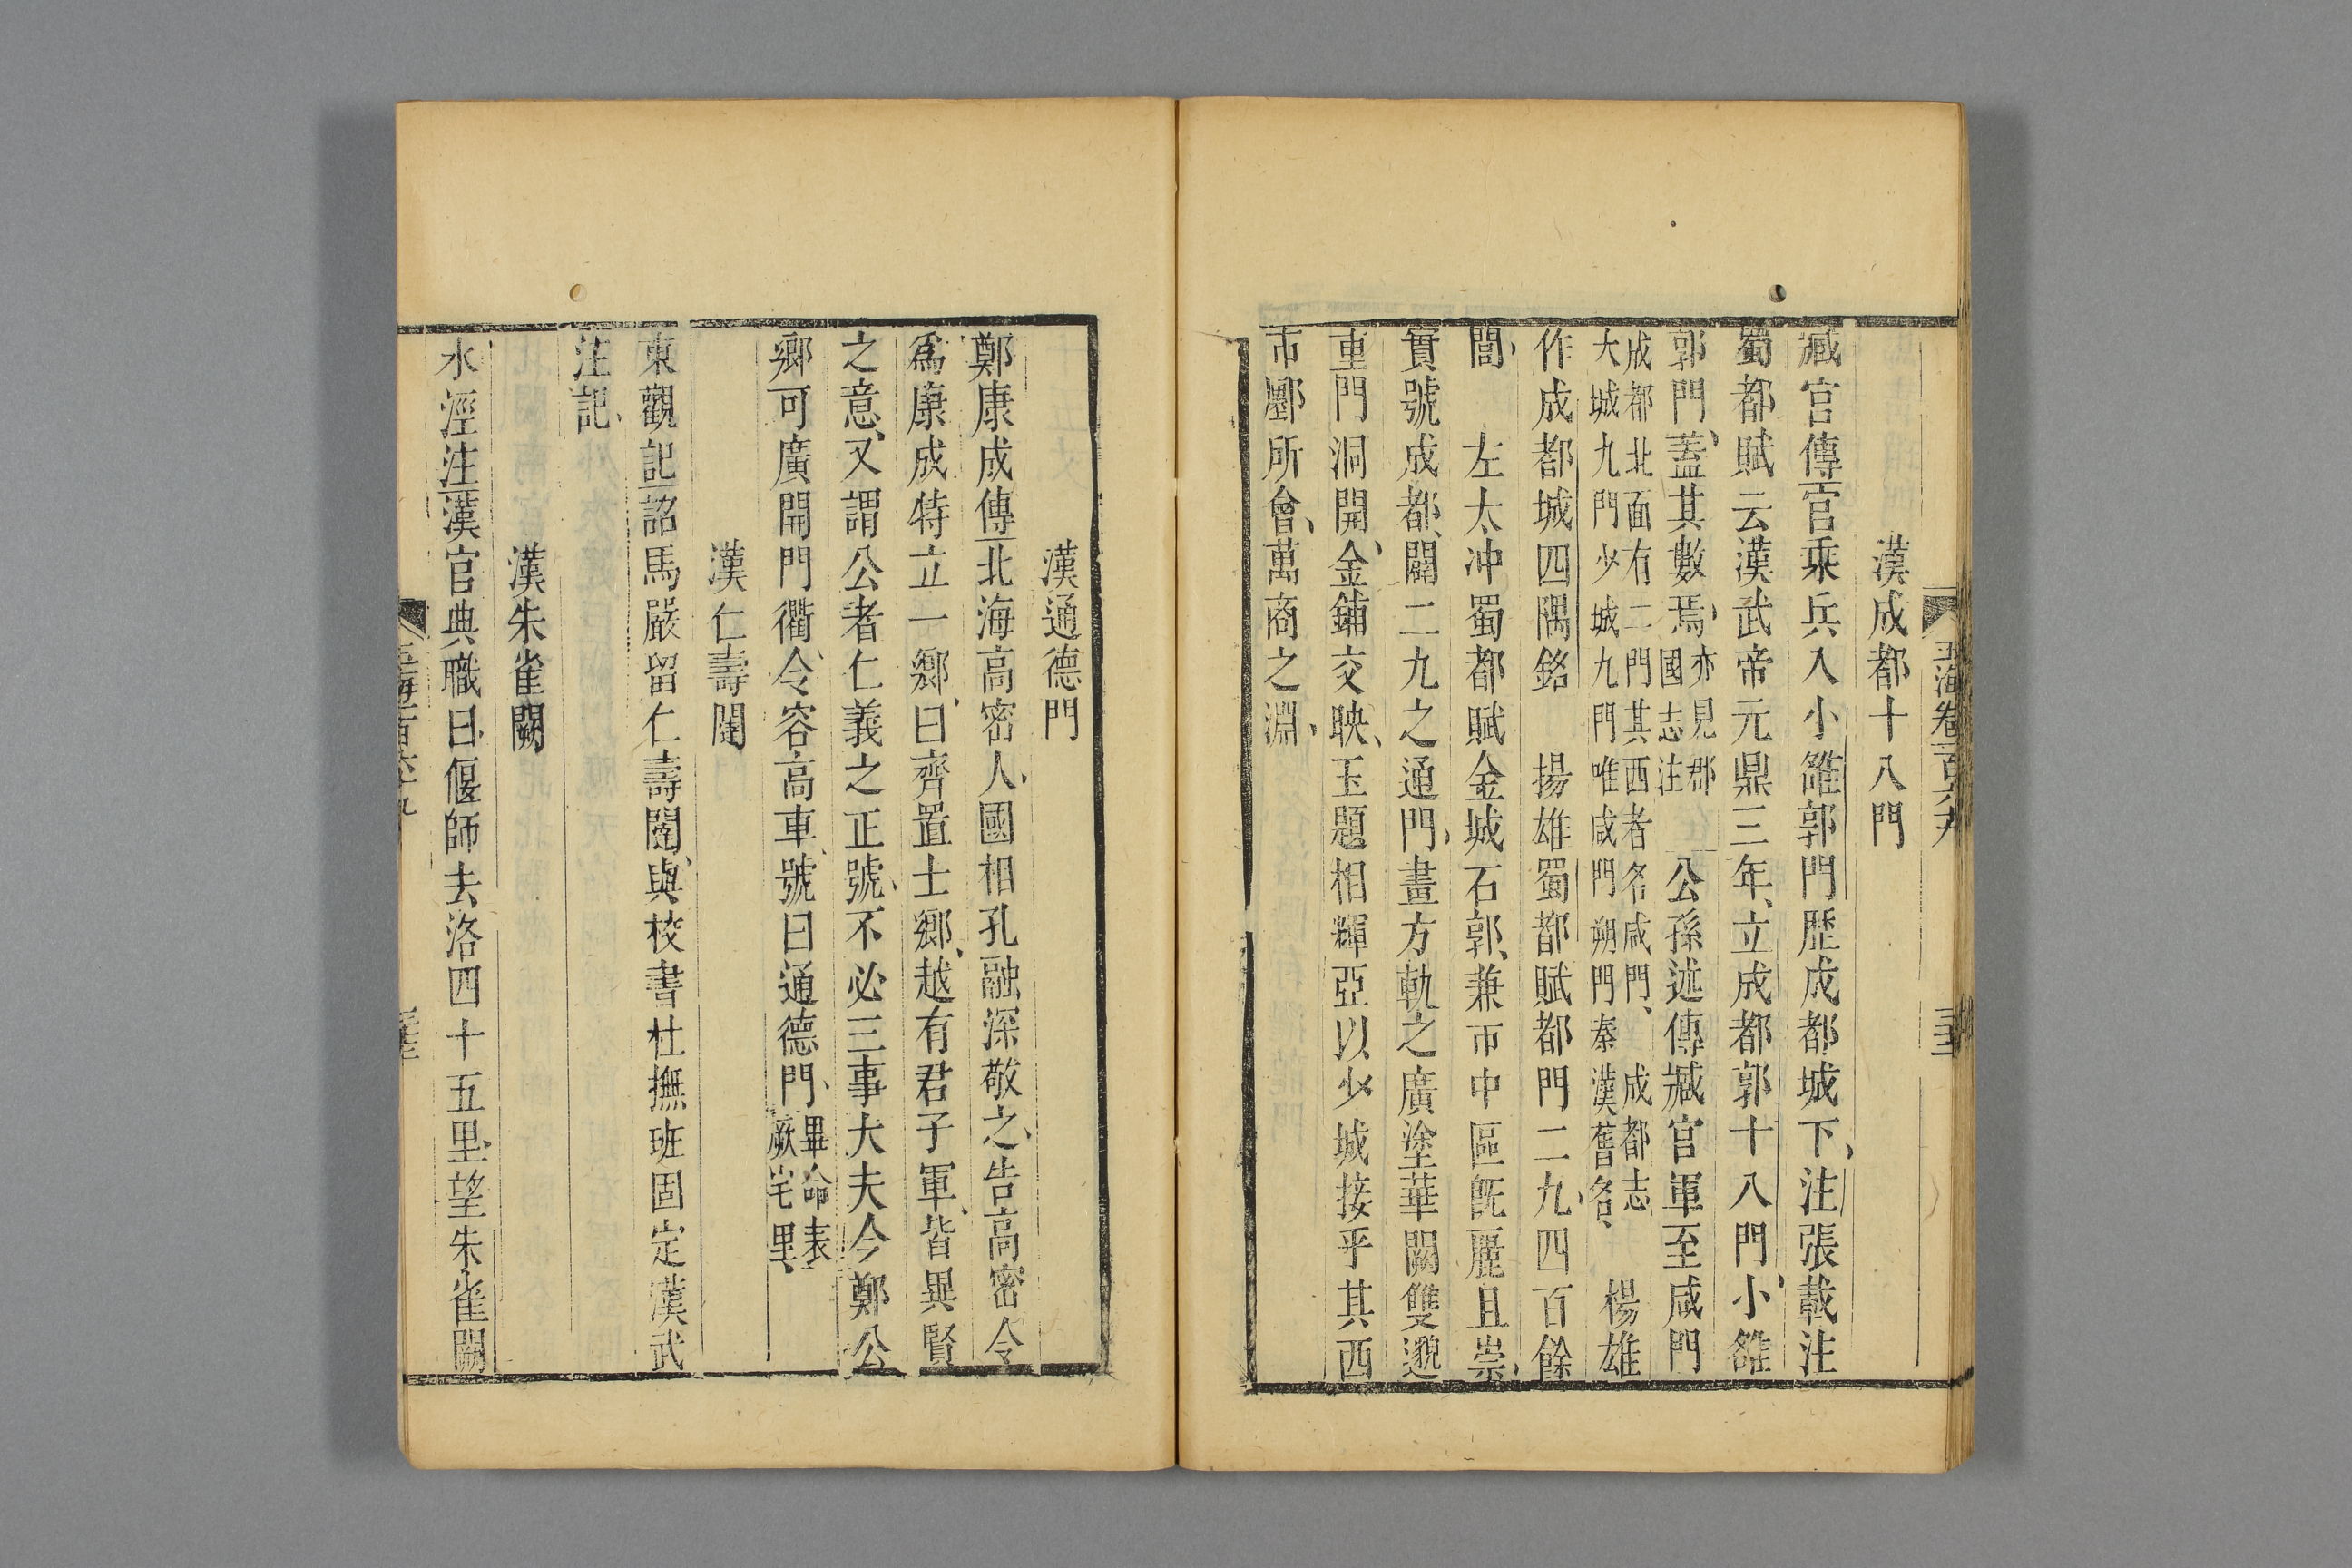 玉海卷一百六九
漢成都十八門
臧宮傳宮乘兵入小雒郭門歷成都城下注張載注
蜀都賦云漢武帝元鼎三年立成都郭十八門小雒
郭門蓋其數焉亦見郡國志注 公孫述傳臧宮軍至咸門
成都北面有二門其西者名咸門 成都志
大城九門少城九門唯咸門朔門秦漢舊名 楊雄
作成都城四隅銘 揚雄蜀都賦都門二九四百餘
閭 左太沖蜀都賦金城石郭兼帀中區旣麗且崇
實號成都闢二九之通門畫方軌之廣塗華闕雙邈
重門洞開金鋪交映玉題相輝亞以少城接乎其西
市廛所會萬商之淵
漢通德門
鄭康成傳北海高密人國相孔融深敬之告高密令
爲康成特立一鄉曰齊置士鄉越有君子軍皆異賢
之意又謂公者仁義之正號不必三事大夫今鄭公
鄉可廣開門衢令容高車號曰通德門畢命表厥宅里
漢仁壽闥
東觀記詔馬嚴留仁壽闥與校書杜撫班固定漢武
注記
漢朱雀闕
水經注漢官典職曰偃師去洛四十五里望朱雀闕